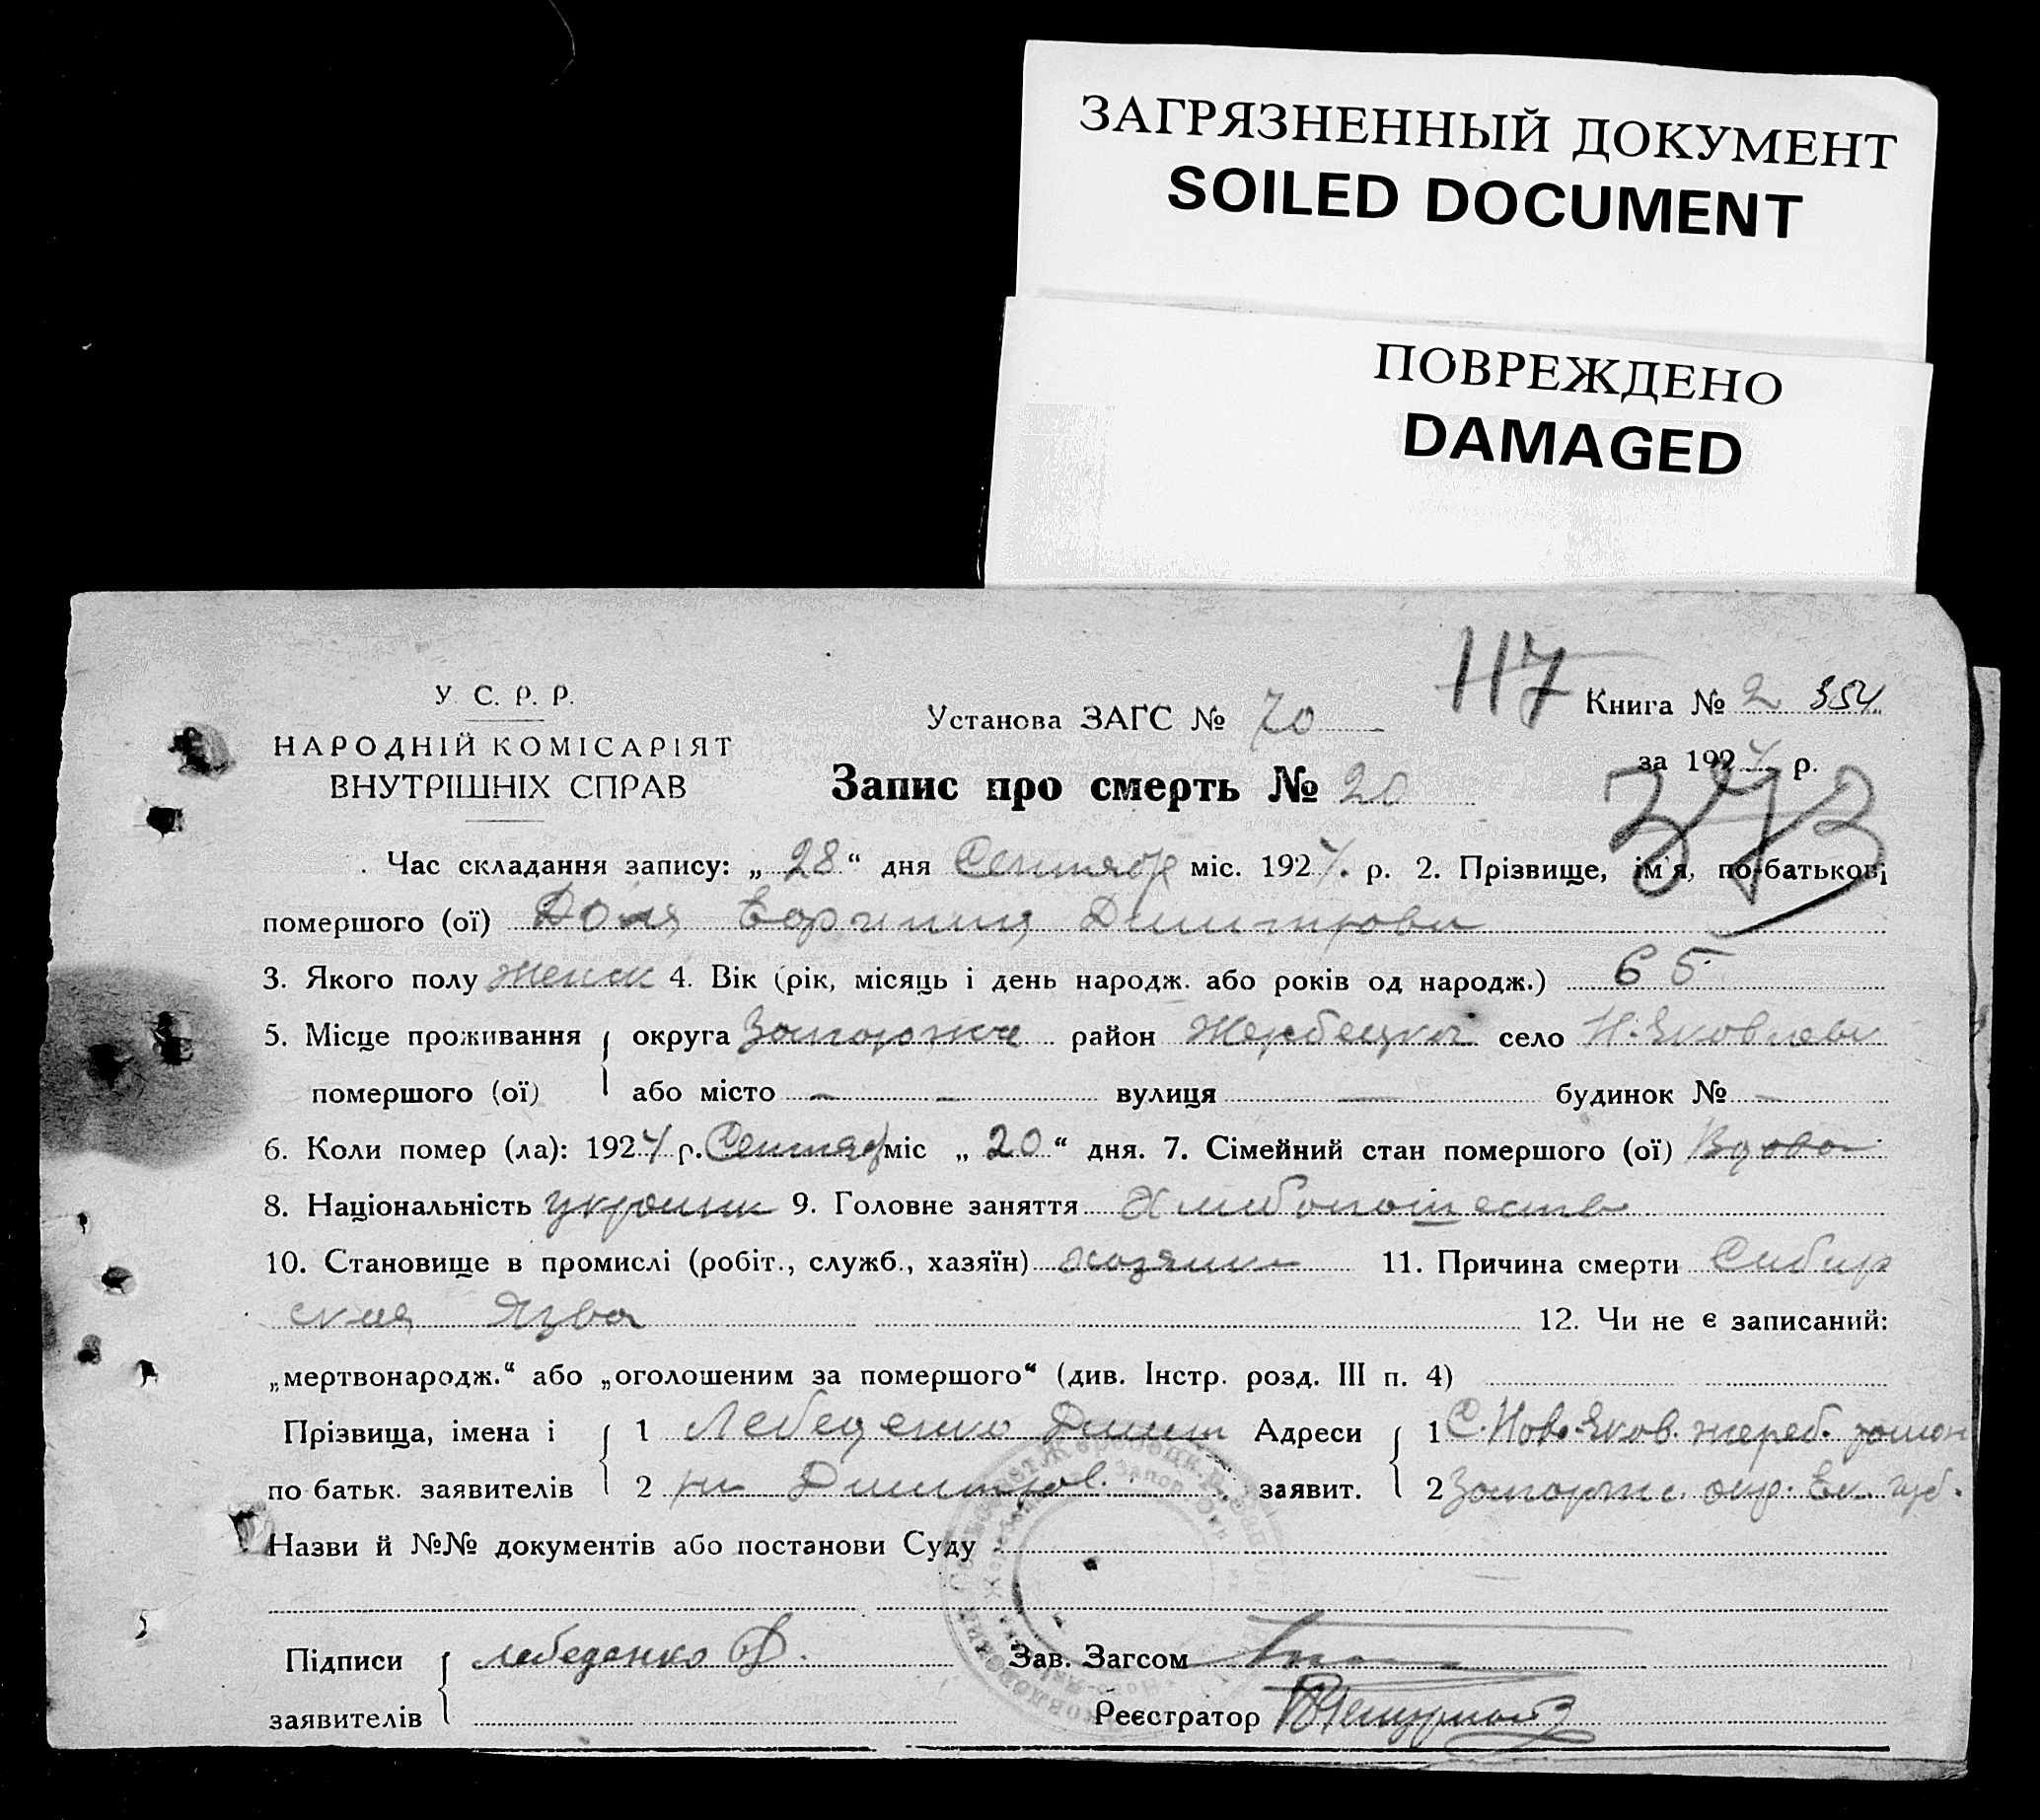 ЗАГРЯЗНЕННЫЙ ДОКУМЕНТ
SOILED DOCUMENT
ПОВРЕЖДЕНО
DAMAGED
117
У С. Р. Р.
НАРОДНІЙ КОМІСАРІЯТ
ВНУТРІШНІХ СПРАВ
Установа ЗАГС № 70
Книга № 2 354
за 1924 р.
373
Запис про смерть № 20
Час складання запису: „ 28 “ дня Сентября міс. 1924. р. 2. Прізвище, ім'я, по-батькові
помершого (ої) Доля Дмитрова
3. Якого полу женск 4. Вік (рік, місяць і день народж. або років од народж.) 65
5. Місце проживання округа Запорожче район Жеребецка село Н. Яковлевк
помершого (ої) або місто — — вулиця — будинок № —
6. Коли помер (ла): 1924 р. Сентяб міс „ 20 “ дня. 7. Сімейний стан помершого (ої) Вдова
8. Національність украинк 9. Головне заняття
10. Становище в промислі (робіт., служб., хазяїн) хозяин 11. Причина смерти Сибир
ская Язва 12. Чи не є записаний:
„мертвонародж.“ або „оголошеним за помершого“ (див. Інстр. розд. III п. 4)
Прізвища, імена і 1 Лебеденко Дмит Адреси 1 С. Ново-Яков. жереб.
по батьк. заявителів 2 ри Дмитров. заявит. 2 Запорож. окр. Ек. губ.
Назви й №№ документів або постанови Суду
Підписи лебеденко Д. Зав. Загсом
заявителів Реєстратор